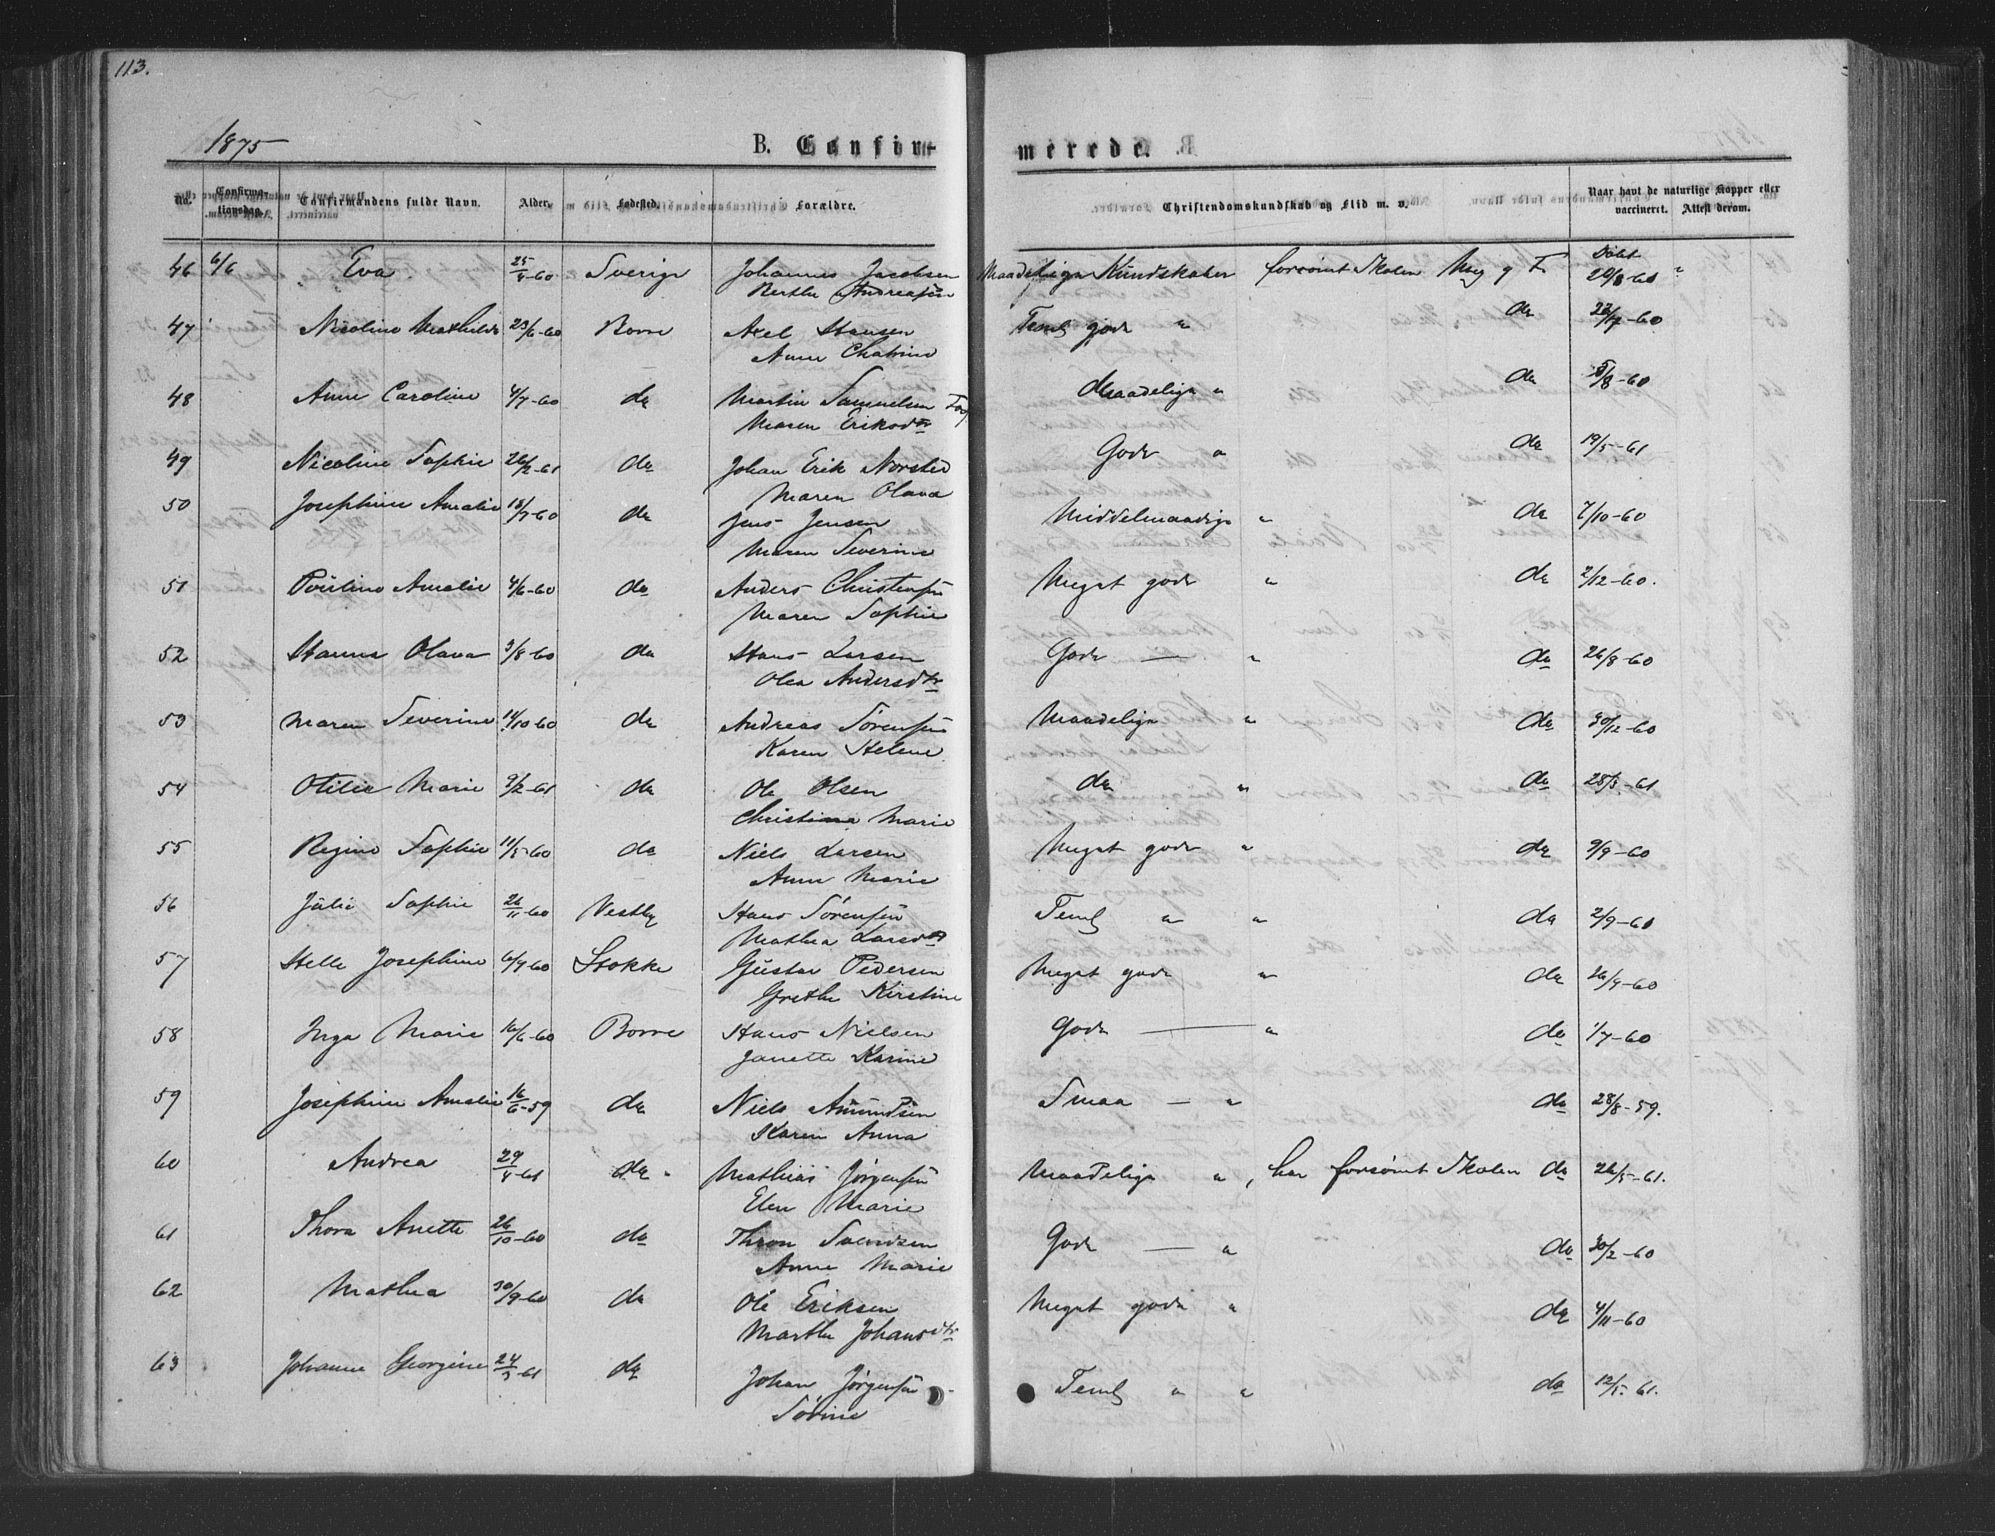 113.
1875
B. Confir-
merede.
No. Confirmationsdag. Confirmandens fulde Navn. Alder. Fødested. Forældre. Christendomskundskab og Flid m. v. Naar havt de naturlige Kopper eller vaccineret. Attest derom.
46 6/6 Eva 25/4-60 Sverige Johannes Jacobsen Maadelige Kundskaber forsømt Skolen Meg g F. Døbt 26/8-60
Berthe Andreasen
47 Nicoline Mathilde 23/6-60 Borre Axel Hansen Teml gode " do 22/7-60
Anne Chatrine
48 Anne Caroline 4/7-60 do Martin Samuelsen Maadelige " do 5/8-60
Maren Eriksdtr
49 Nicoline Sophie 26/2-61 do Johan Erik Norsted Gode " do 19/5-61
Maren Olava
50 Josephine Amalie 18/7-60 do Jens Jensen Middelmaadige " do 7/10-60
Maren Severine
51 Pouline Amalie 4/6-60 do Anders Christensen Meget gode " do 2/12-60.
Maren Sophie
52 Hanna Olava 3/8-60 do Hans Larsen Gode — " do 26/8-60
Olea Andersdtr
53 Maren Severine 14/10-60 do Andreas Sørensen Maadelige " do 30/12-60
Karen Helene
54 Otilie Marie 9/2-61 do Ole Olsen do " do 28/3-61
Christiana Marie
55 Regine Sophie 11/5-60 do Niels Larsen Meget gode " do 9/9-60
Anne Marie
56 Julie Sophie 26/11-60 Vestby Hans Sørensen Teml " " do 2/9-60
Mathea Larsdtr
57 Helle Josephine 6/9-60 Stokke Gustav Pedersen Meget gode " do 26/9-60
Grethe Kirstine
58 Inga Marie 16/6-60 Borre Hans Nielsen Gode — " do 1/7-60
Janette Karine
59 Josephine Amalie 16/6-59 do Niels Amundsen Smaa — " do 28/8-59.
Karen Anna
60 Andrea 29/4-61 do Mathias Jørgensen Maadelige ", har forsømt Skolen do 26/5-61.
Elen Marie
61 Thora Anette 26/10-60 do Thron Svendsen Gode — " do 30/2-60
Anne Marie
62 Mathea 30/9-60 do Ole Eriksen Meget gode " do 4/11-60
Marthe Johansdtr
63 Johanne Georgine 24/3-61 do Johan Jørgensen Teml " " do 12/5-61.
Sørine